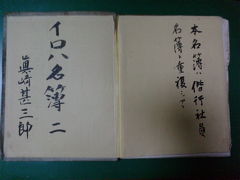 本名簿ハ偕行社員
名簿ト重複シテ
イロハ名簿 二
眞崎甚三郎